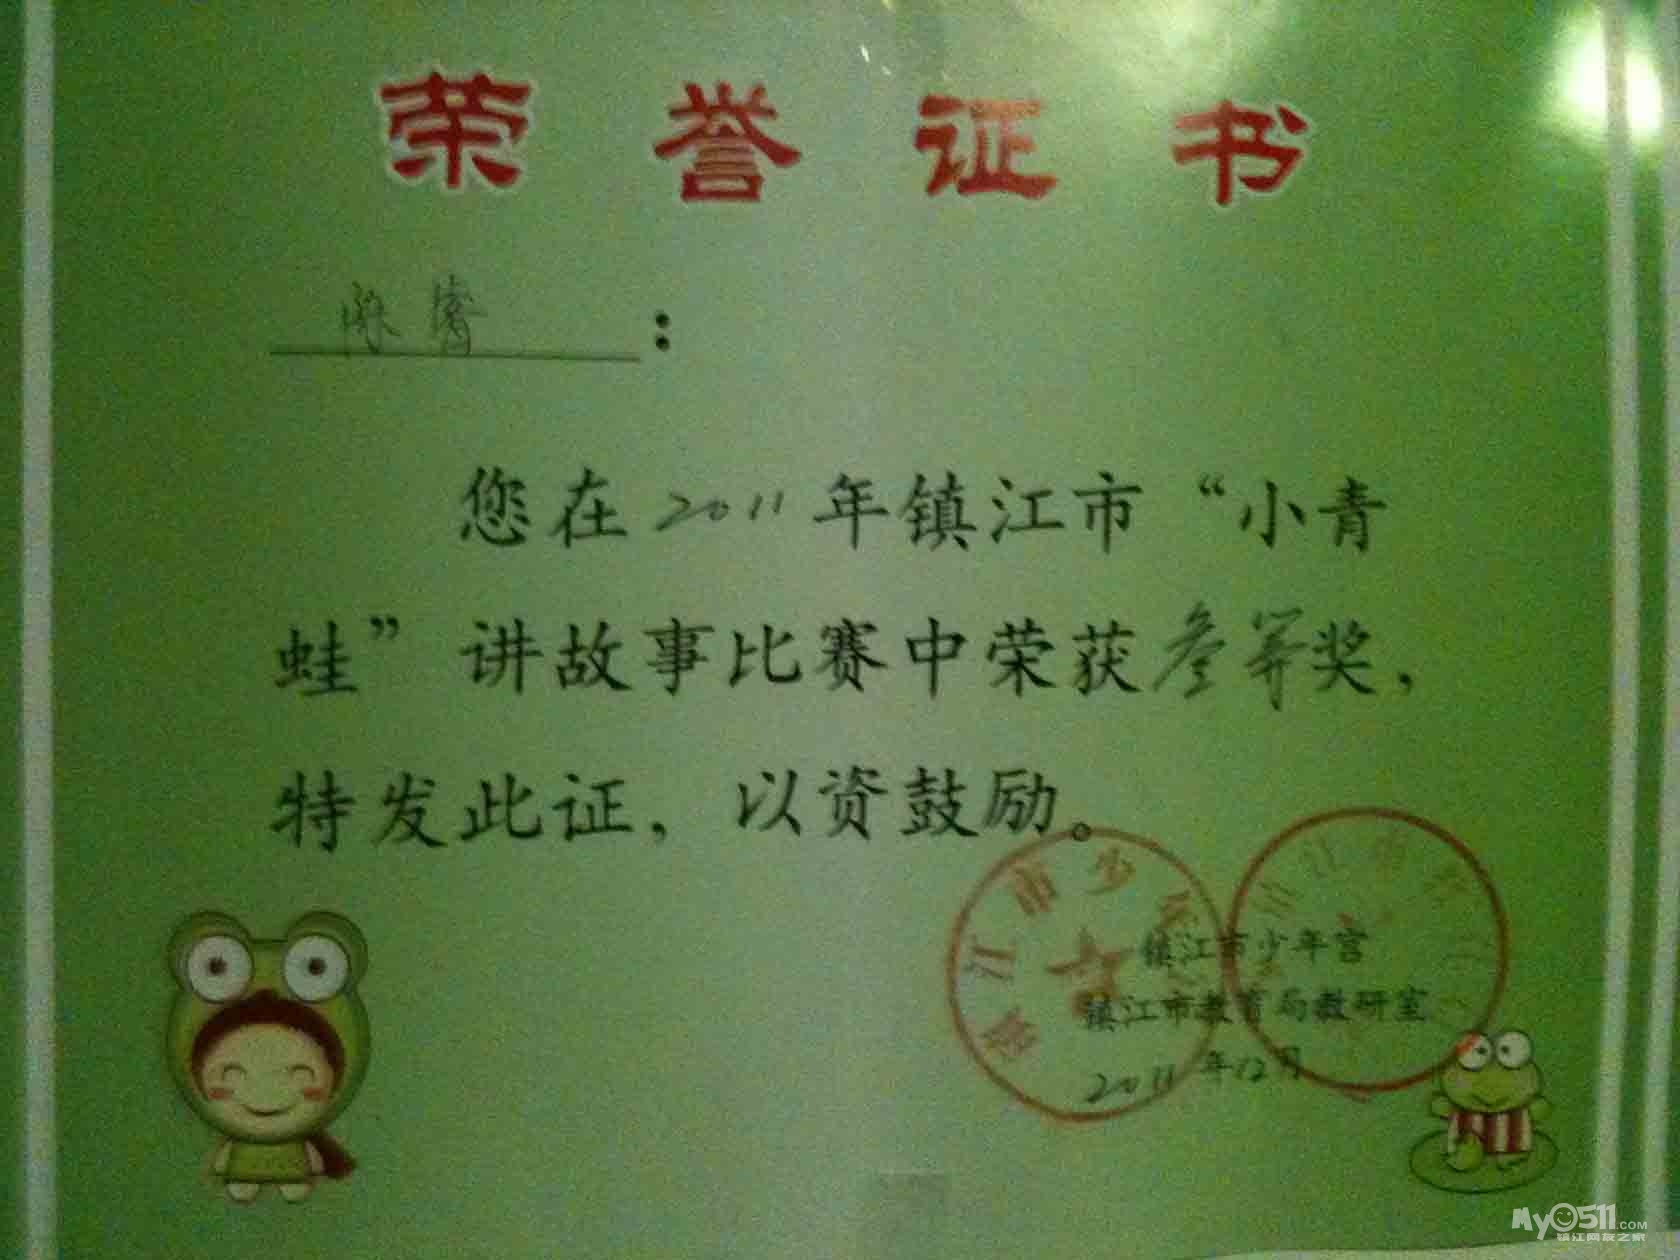 荣誉证书
陈睿：
您在2011年镇江市“小青
蛙”讲故事比赛中荣获叁等奖，
特发此证，以资鼓励。
镇江市少年宫
镇江市教育局教研室
2011年12月
My0511.com
镇江网友之家